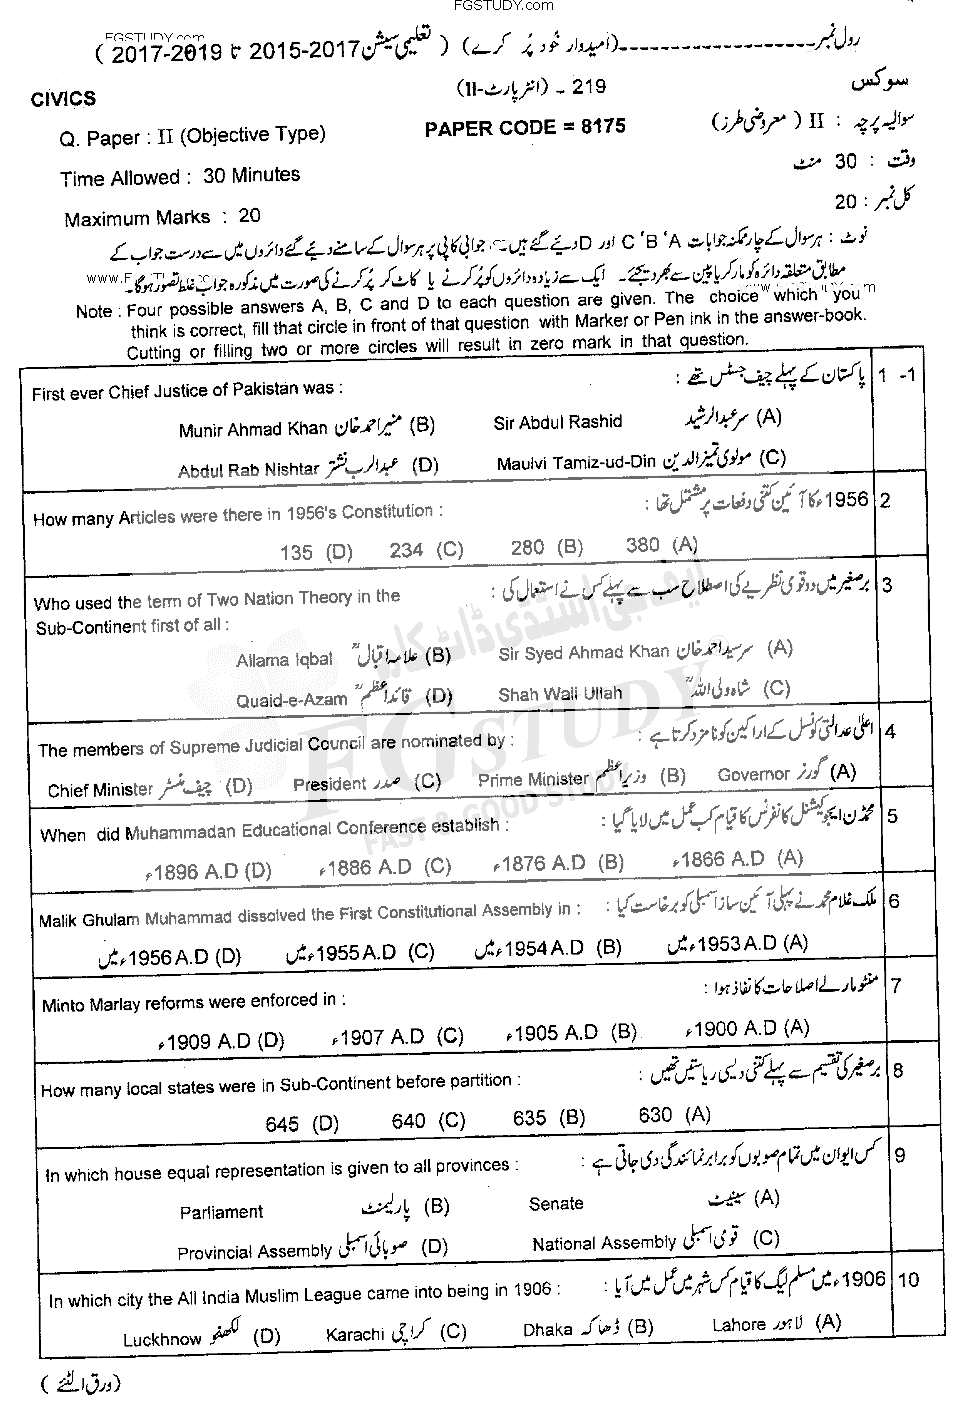 FGSTUDY.com
FGSTUDY.com
رول نمبر-------------------(اُمیدوار خُود پُر کرے) ( تعلیمی سیشن 2017-2015 تا 2019-2017 )
سوکس 219 - (انٹر پارٹ-II)
CIVICS
سوالیہ پرچہ : II ( معروضی طرز) PAPER CODE = 8175
Q. Paper : II (Objective Type)
وقت : 30 منٹ
Time Allowed : 30 Minutes
کل نمبر : 20
Maximum Marks : 20
نوٹ : ہر سوال کے چار ممکنہ جوابات A ' B ' C اور D دیئے گئے ہیں۔ جوابی کاپی پر ہر سوال کے سامنے دیئے گئے دائروں میں سے درست جواب کے
مطابق متعلقہ دائرہ کو مارکر یا پین سے بھر دیجئے۔ ایک سے زیادہ دائروں کو پُر کرنے یا کاٹ کر پُر کرنے کی صورت میں مذکورہ جواب غلط تصور ہوگا۔
Note : Four possible answers A, B, C and D to each question are given. The choice which you
think is correct, fill that circle in front of that question with Marker or Pen ink in the answer-book.
Cutting or filling two or more circles will result in zero mark in that question.
1 -1 پاکستان کے پہلے چیف جسٹس تھے :
First ever Chief Justice of Pakistan was :
(A) سر عبدالرشید Sir Abdul Rashid (B) منیر احمد خان Munir Ahmad Khan
(C) مولوی تمیز الدین Maulvi Tamiz-ud-Din (D) عبدالرب نشتر Abdul Rab Nishtar
2 1956ء کا آئین کتنی دفعات پر مشتمل تھا :
How many Articles were there in 1956's Constitution :
380 (A) 280 (B) 234 (C) 135 (D)
3 برصغیر میں دو قومی نظریے کی اصطلاح سب سے پہلے کس نے استعمال کی :
Who used the term of Two Nation Theory in the
Sub-Continent first of all :
(A) سر سید احمد خان Sir Syed Ahmad Khan (B) علامہ اقبالؒ Allama Iqbal
(C) شاہ ولی اللہؒ Shah Wali Ullah (D) قائداعظمؒ Quaid-e-Azam
ایف جی اسٹڈی ڈاٹ کام
FGSTUDY
FAST & GOOD STUDY
4 اعلیٰ عدالتی کونسل کے اراکین کو نامزد کرتا ہے :
The members of Supreme Judicial Council are nominated by :
(A) گورنر Governor (B) وزیراعظم Prime Minister (C) صدر President (D) چیف منسٹر Chief Minister
5 محمڈن ایجوکیشنل کانفرنس کا قیام کب عمل میں لایا گیا :
When did Muhammadan Educational Conference establish :
1866 A.D (A)ء 1876 A.D (B)ء 1886 A.D (C)ء 1896 A.D (D)ء
6 ملک غلام محمد نے پہلی آئین ساز اسمبلی کو برخاست کیا :
Malik Ghulam Muhammad dissolved the First Constitutional Assembly in :
1953 A.D (A)ء میں 1954 A.D (B)ء میں 1955 A.D (C)ء میں 1956 A.D (D)ء میں
7 منٹو مارلے اصلاحات کا نفاذ ہوا :
Minto Marlay reforms were enforced in :
1900 A.D (A)ء 1905 A.D (B)ء 1907 A.D (C)ء 1909 A.D (D)ء
8 برصغیر کی تقسیم سے پہلے کتنی دیسی ریاستیں تھیں :
How many local states were in Sub-Continent before partition :
630 (A) 635 (B) 640 (C) 645 (D)
9 کس ایوان میں تمام صوبوں کو برابر نمائندگی دی جاتی ہے :
In which house equal representation is given to all provinces :
(A) سینیٹ Senate (B) پارلیمنٹ Parliament
(C) قومی اسمبلی National Assembly (D) صوبائی اسمبلی Provincial Assembly
10 1906ء میں مسلم لیگ کا قیام کس شہر میں عمل میں آیا :
In which city the All India Muslim League came into being in 1906 :
(A) لاہور Lahore (B) ڈھاکہ Dhaka (C) کراچی Karachi (D) لکھنؤ Luckhnow
(ورق الٹئے )